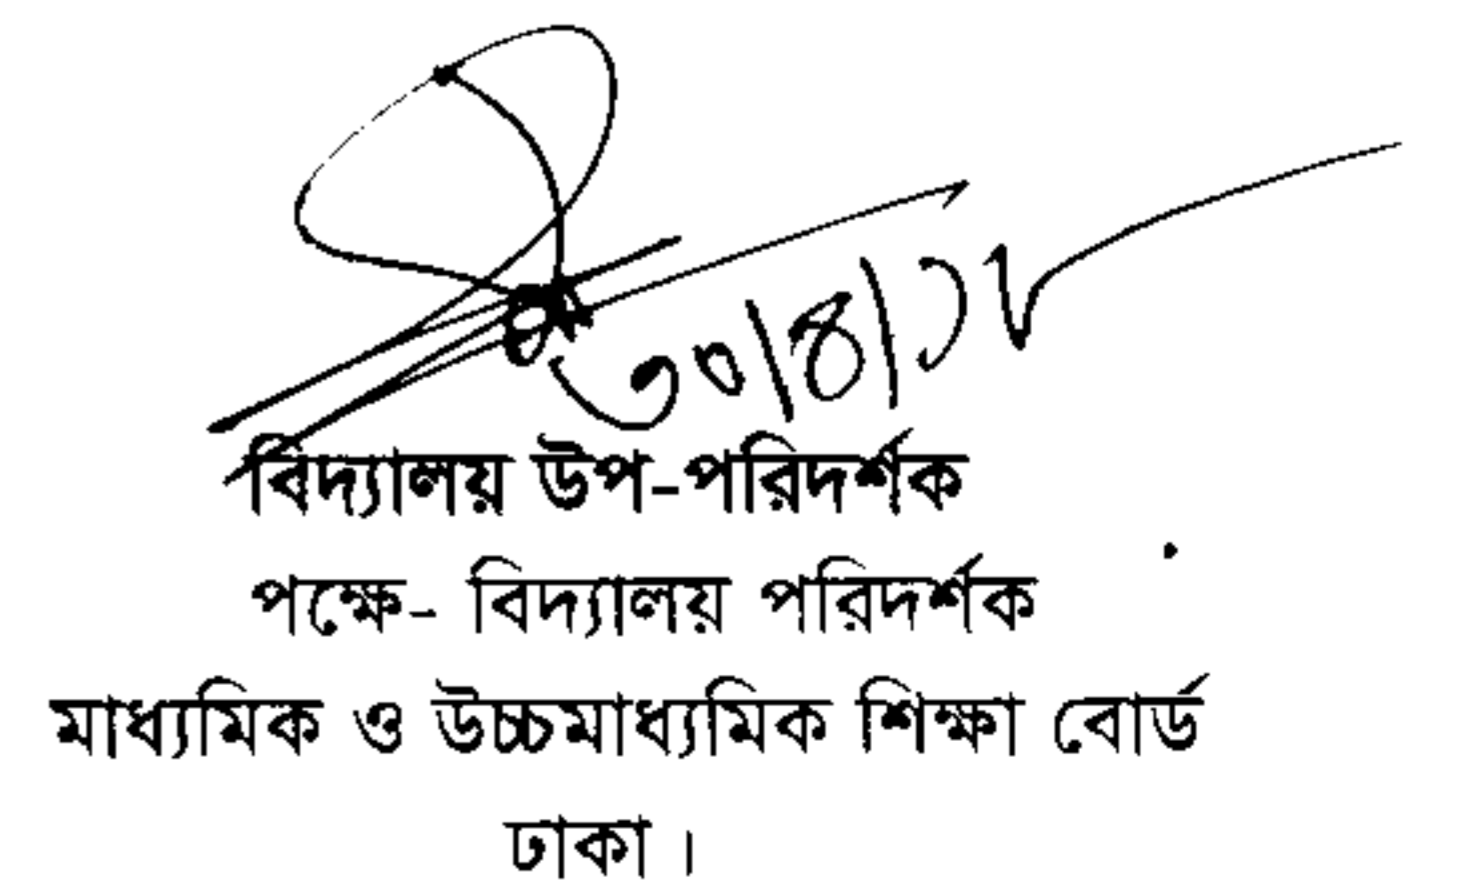 ৩০/৪/১৮
বিদ্যালয় উপ-পরিদর্শক
পক্ষে- বিদ্যালয় পরিদর্শক
মাধ্যমিক ও উচ্চমাধ্যমিক শিক্ষা বোর্ড
ঢাকা।